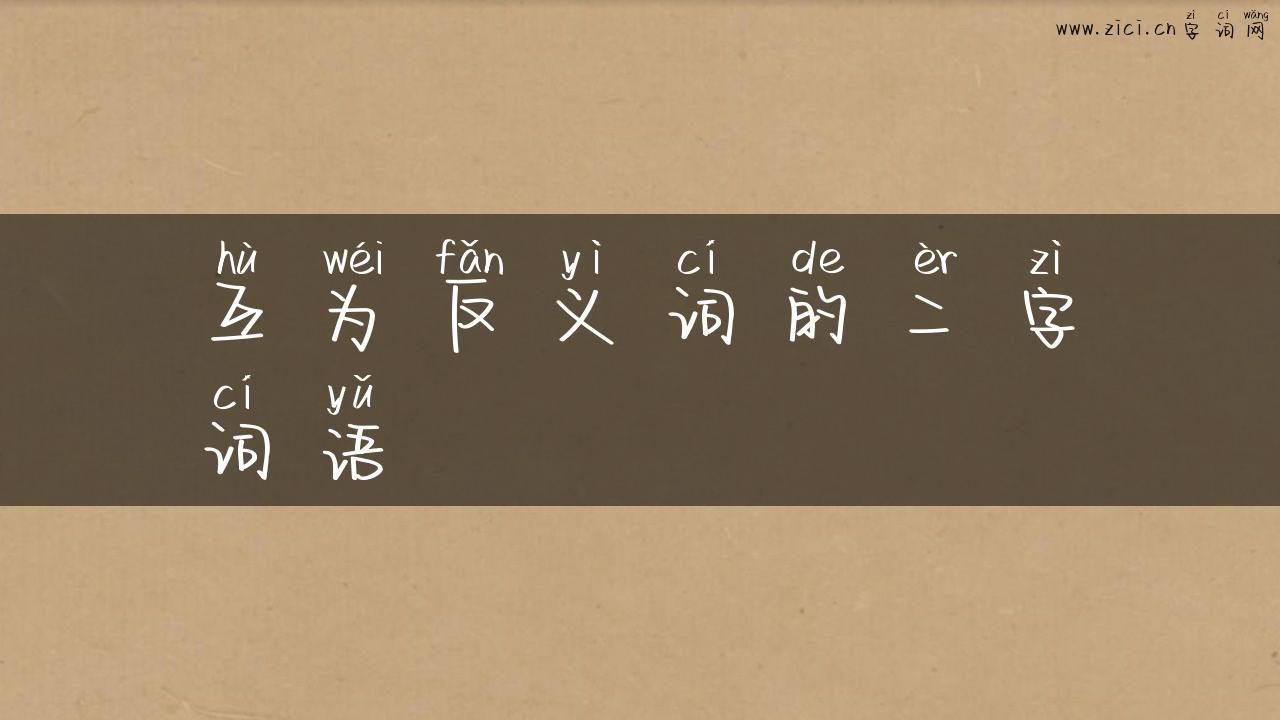 zì cí wǎng
www.zici.cn 字词网
hù wéi fǎn yì cí de èr zì
互为反义词的二字
cí yǔ
词语